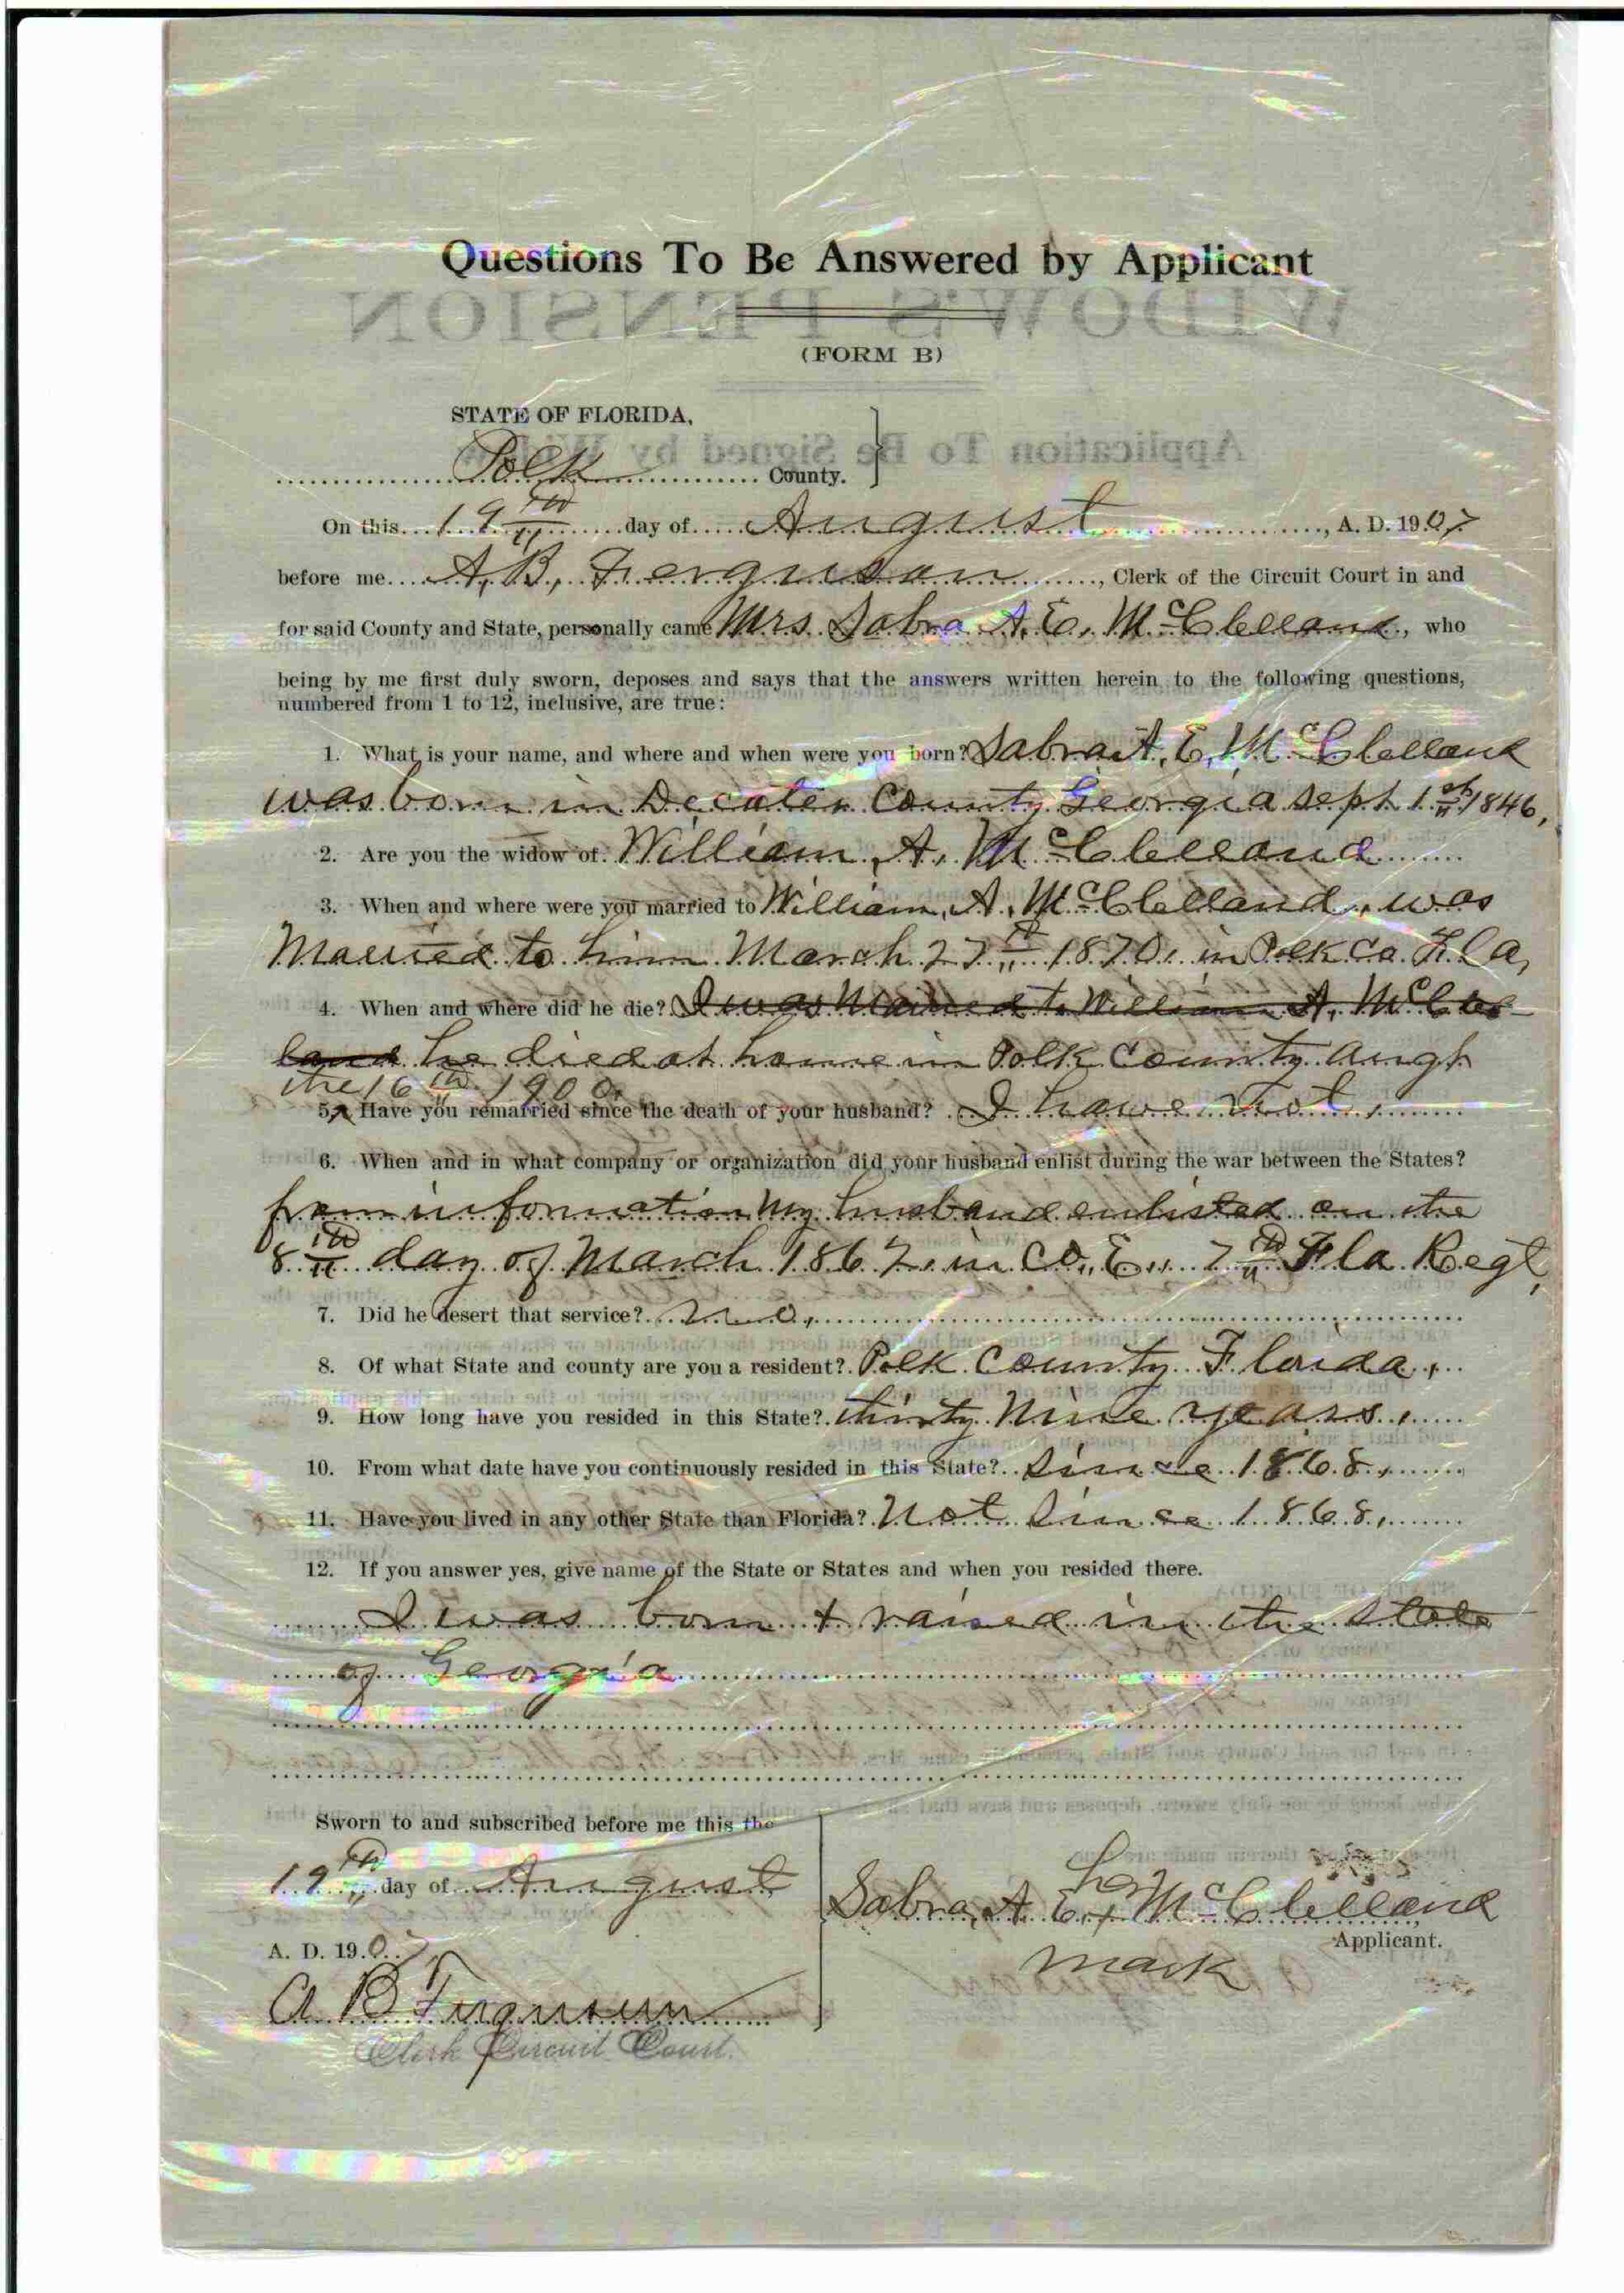 Questions To Be Answered by Applicant
WIDOW'S PENSION
(FORM B)
STATE OF FLORIDA,
Application To Be Signed by Widow
Polk County.
On this 19th day of August, A. D. 1907
before me A, B, Ferguson, Clerk of the Circuit Court in and
for said County and State, personally came Mrs Sabra A, E, McClelland, who
being by me first duly sworn, deposes and says that the answers written herein to the following questions,
numbered from 1 to 12, inclusive, are true:
1. What is your name, and where and when were you born? Sabra A, E, McClelland
was born in Decater County Georgia Sept 1st 1846,
2. Are you the widow of William, A, McClelland
3. When and where were you married to William, A, McClelland, was
Married to him March 27th 1870, in Polk Co. Fla,
4. When and where did he die? I was Married to William A, McClel
land he died at home in Polk County Augt
the 16th 1900
5. Have you remarried since the death of your husband? I have not,
6. When and in what company or organization did your husband enlist during the war between the States?
from information my husband enlisted on the
8th day of March 1862, in Co, E,, 7th Fla Regt,
7. Did he desert that service? no,
8. Of what State and county are you a resident? Polk County Florida,
9. How long have you resided in this State? thirty Nine years,
10. From what date have you continuously resided in this State? Since 1868,
11. Have you lived in any other State than Florida? Not Since 1868,
12. If you answer yes, give name of the State or States and when you resided there.
I was born + raised in the State
of Georgia
Sworn to and subscribed before me this the
19th day of August
A. D. 1907,
A B Ferguson
Clerk Circuit Court.
her
Sabra, A E, + McClelland
Applicant.
mark